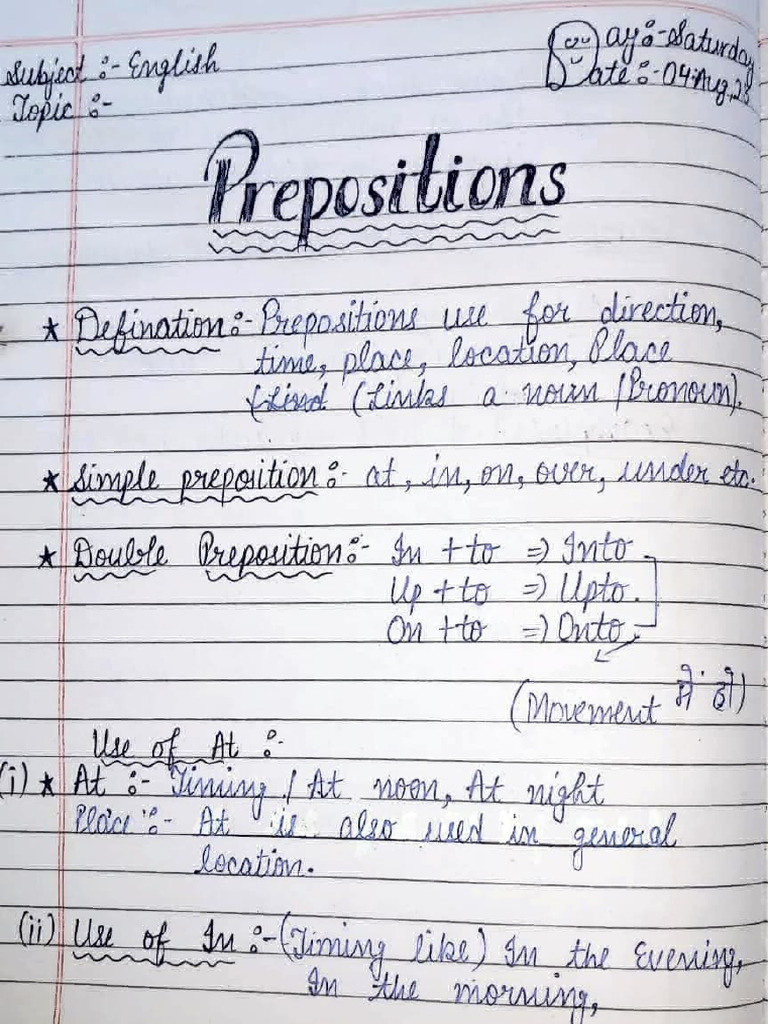 Subject :- English
Day :- Saturday
Topic :-
Date :- 04 Aug, 
Prepositions
★ Defination :- Prepositions use for direction,
time, place, location, Place
(Links a noun / Pronoun).
★ Simple preposition :- at, in, on, over, under etc.
★ Double Preposition :- In + to => Into
Up + to => Upto.
On + to => Onto
(Movement में हो)
Use of At :-
(i) ★ At :- Timing / At noon, At night
Place :- At is also used in general
location.
(ii) Use of In :- (Timing like) In the Evening,
In the morning,